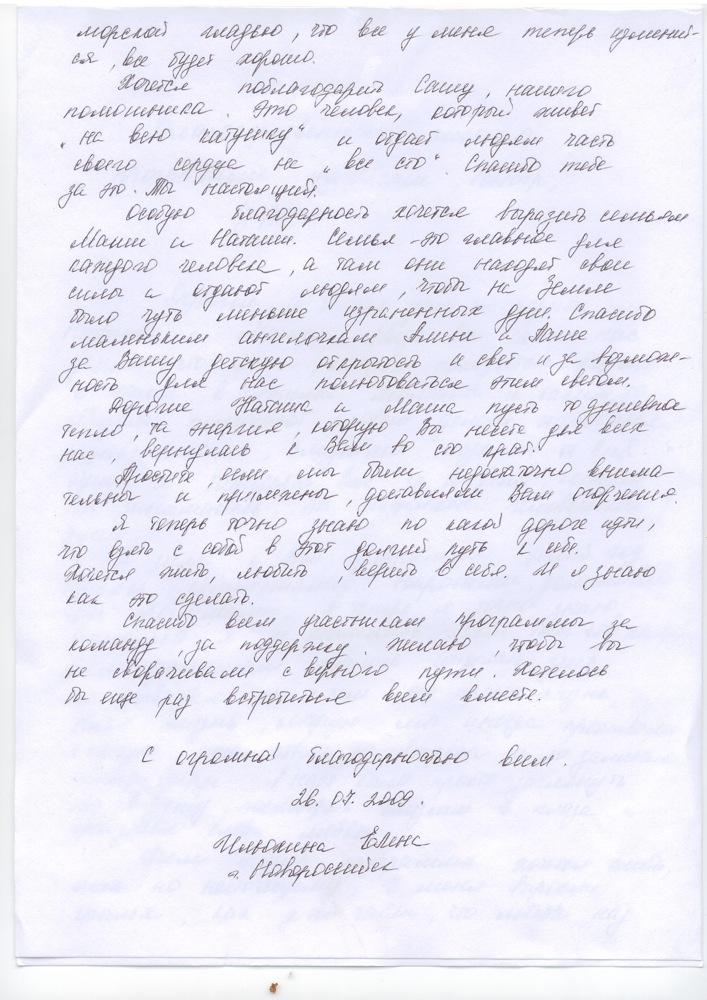 морской гладью, что все у меня теперь изменит-
ся, все будет хорошо.
Хочется поблагодарить Сашу, нашего
помошника. Это человек, который живет
"на всю катушку" и отдает людям часть
своего сердца на "все сто". Спасибо тебе
за это. Ты настоящий.
Особую благодарность хочется выразить семьям
Маши и Наташи. Семья - это главное для
каждого человека, а там они находят свои
силы и отдают людям, чтобы на Земле
было чуть меньше израненных душ. Спасибо
маленьким ангелочкам Алине и Паше
за Вашу детскую открытость и свет и за возмож-
ность для нас полюбоваться этим светом.
Дорогие Наташа и Маша пусть то душевное
тепло, та энергия, которую Вы несете для всех
нас, вернулась к Вам во сто крат.
Простите, если мы были недостаточно внима-
тельны и прилежны, доставляли Вам огорчения.
Я теперь точно знаю по какой дороге идти,
что взять с собой в этот долгий путь к себе.
Хочется жить, любить, верить в себя. И я знаю
как это сделать.
Спасибо всем участникам программы за
команду, за поддержку. Желаю, чтобы вы
не сворачивали с верного пути. Хотелось
бы еще раз встретиться всем вместе.
С огромной благодарностью всем.
26.07.2009.
Илюхина Елена
г. Новороссийск